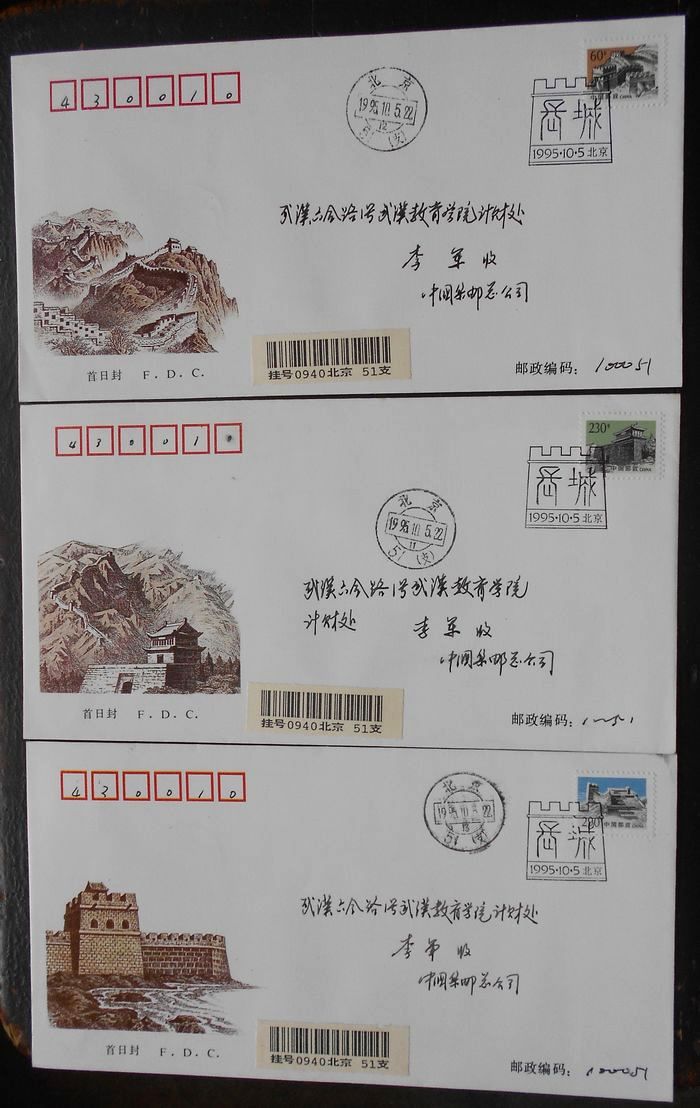 430010
北京
1995.10.5.22
12
51(支)
60分
中国邮政 CHINA
长城
1995·10·5北京
武漢六合路1号武漢教育学院计财处
李军 收
中国集邮总公司
首日封 F. D. C.
挂号0940北京 51支
邮政编码：100051
430010
北京
1995.10.5.22
11
51(支)
230分
中国邮政 CHINA
长城
1995·10·5北京
武漢六合路1号武漢教育学院
计财处 李军 收
中国集邮总公司
首日封 F. D. C.
挂号0940北京 51支
邮政编码：
430010
北京
1995.10.5.22
51(支)
中国邮政 CHINA
长城
1995·10·5北京
武漢六合路1号武漢教育学院计财处
李军 收
中国集邮总公司
首日封 F. D. C.
挂号0940北京 51支
邮政编码：100051